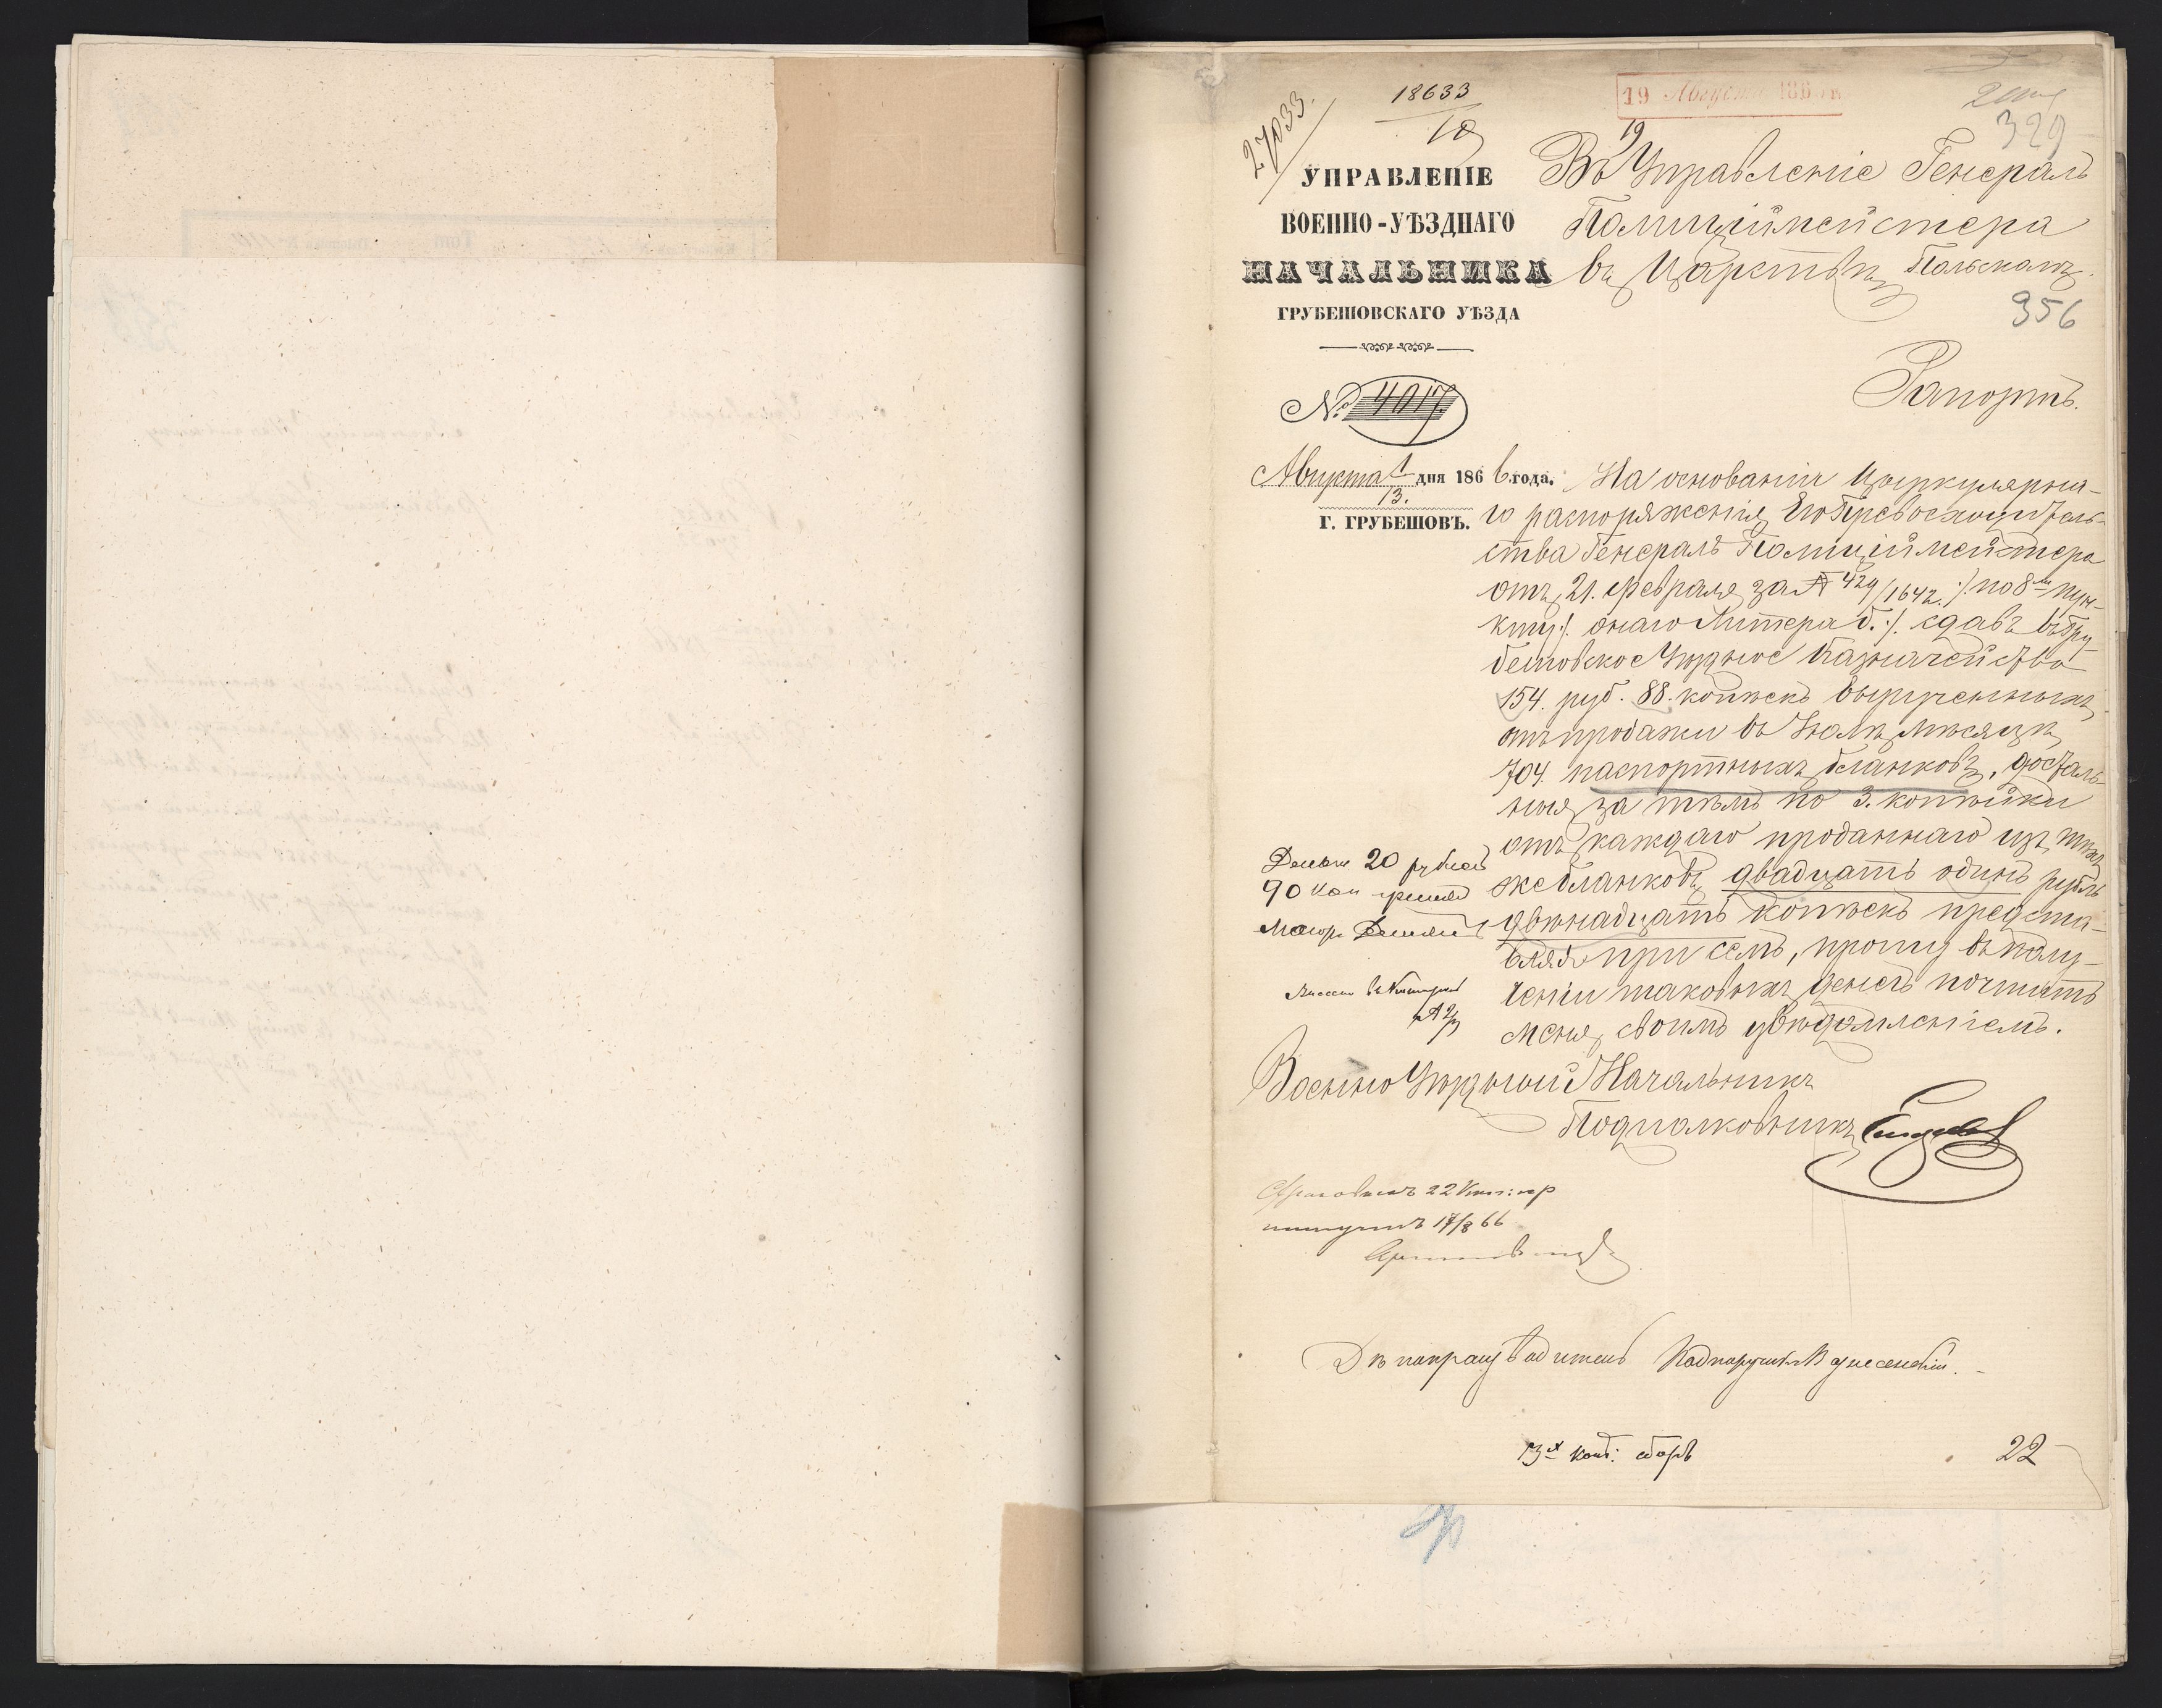 27033.
18633
19
19 Августа 186
329
УПРАВЛЕНІЕ
ВОЕННО-УѢЗДНАГО
НАЧАЛЬНИКА
ГРУБЕШОВСКАГО УѢЗДА
№ 4017
Августа 1/13. дня 1866 года.
Г. ГРУБЕШОВЪ.
Въ Управленіе Генералъ
Полиціймейстера
въ Царствѣ Польскомъ.
356
Рапортъ.
На основаніи Циркулярна-
го распоряженія Его Превосходитель-
ства Генералъ Полиціймейстера
отъ 21. Февраля за № 429/1642. /:по 8му пун-
кту:/. онаго Литера б.:/. сдавъ въ Гру-
бешовское Уѣздное Казначейство
154. руб. 88. копѣекъ вырученныхъ
отъ продажи въ Іюлѣ мѣсяцѣ
704. паспортныхъ бланковъ, досталь-
ныя за тѣмъ по 3. копѣйки
отъ каждаго проданнаго изъ тѣхъ
же бланковъ двадцать одинъ рубль
двѣнадцать копѣекъ предста-
вляя при семъ, прошу въ полу-
ченіи таковыхъ денегъ почтить
меня своимъ увѣдомленіемъ.
Деньги 20 рублей
90 коп принялъ
Маіоръ
Военно Уѣздный Начальникъ
Подполковникъ
22
17/8 66
Дѣлопроизводитель
3х коп: сборъ
22